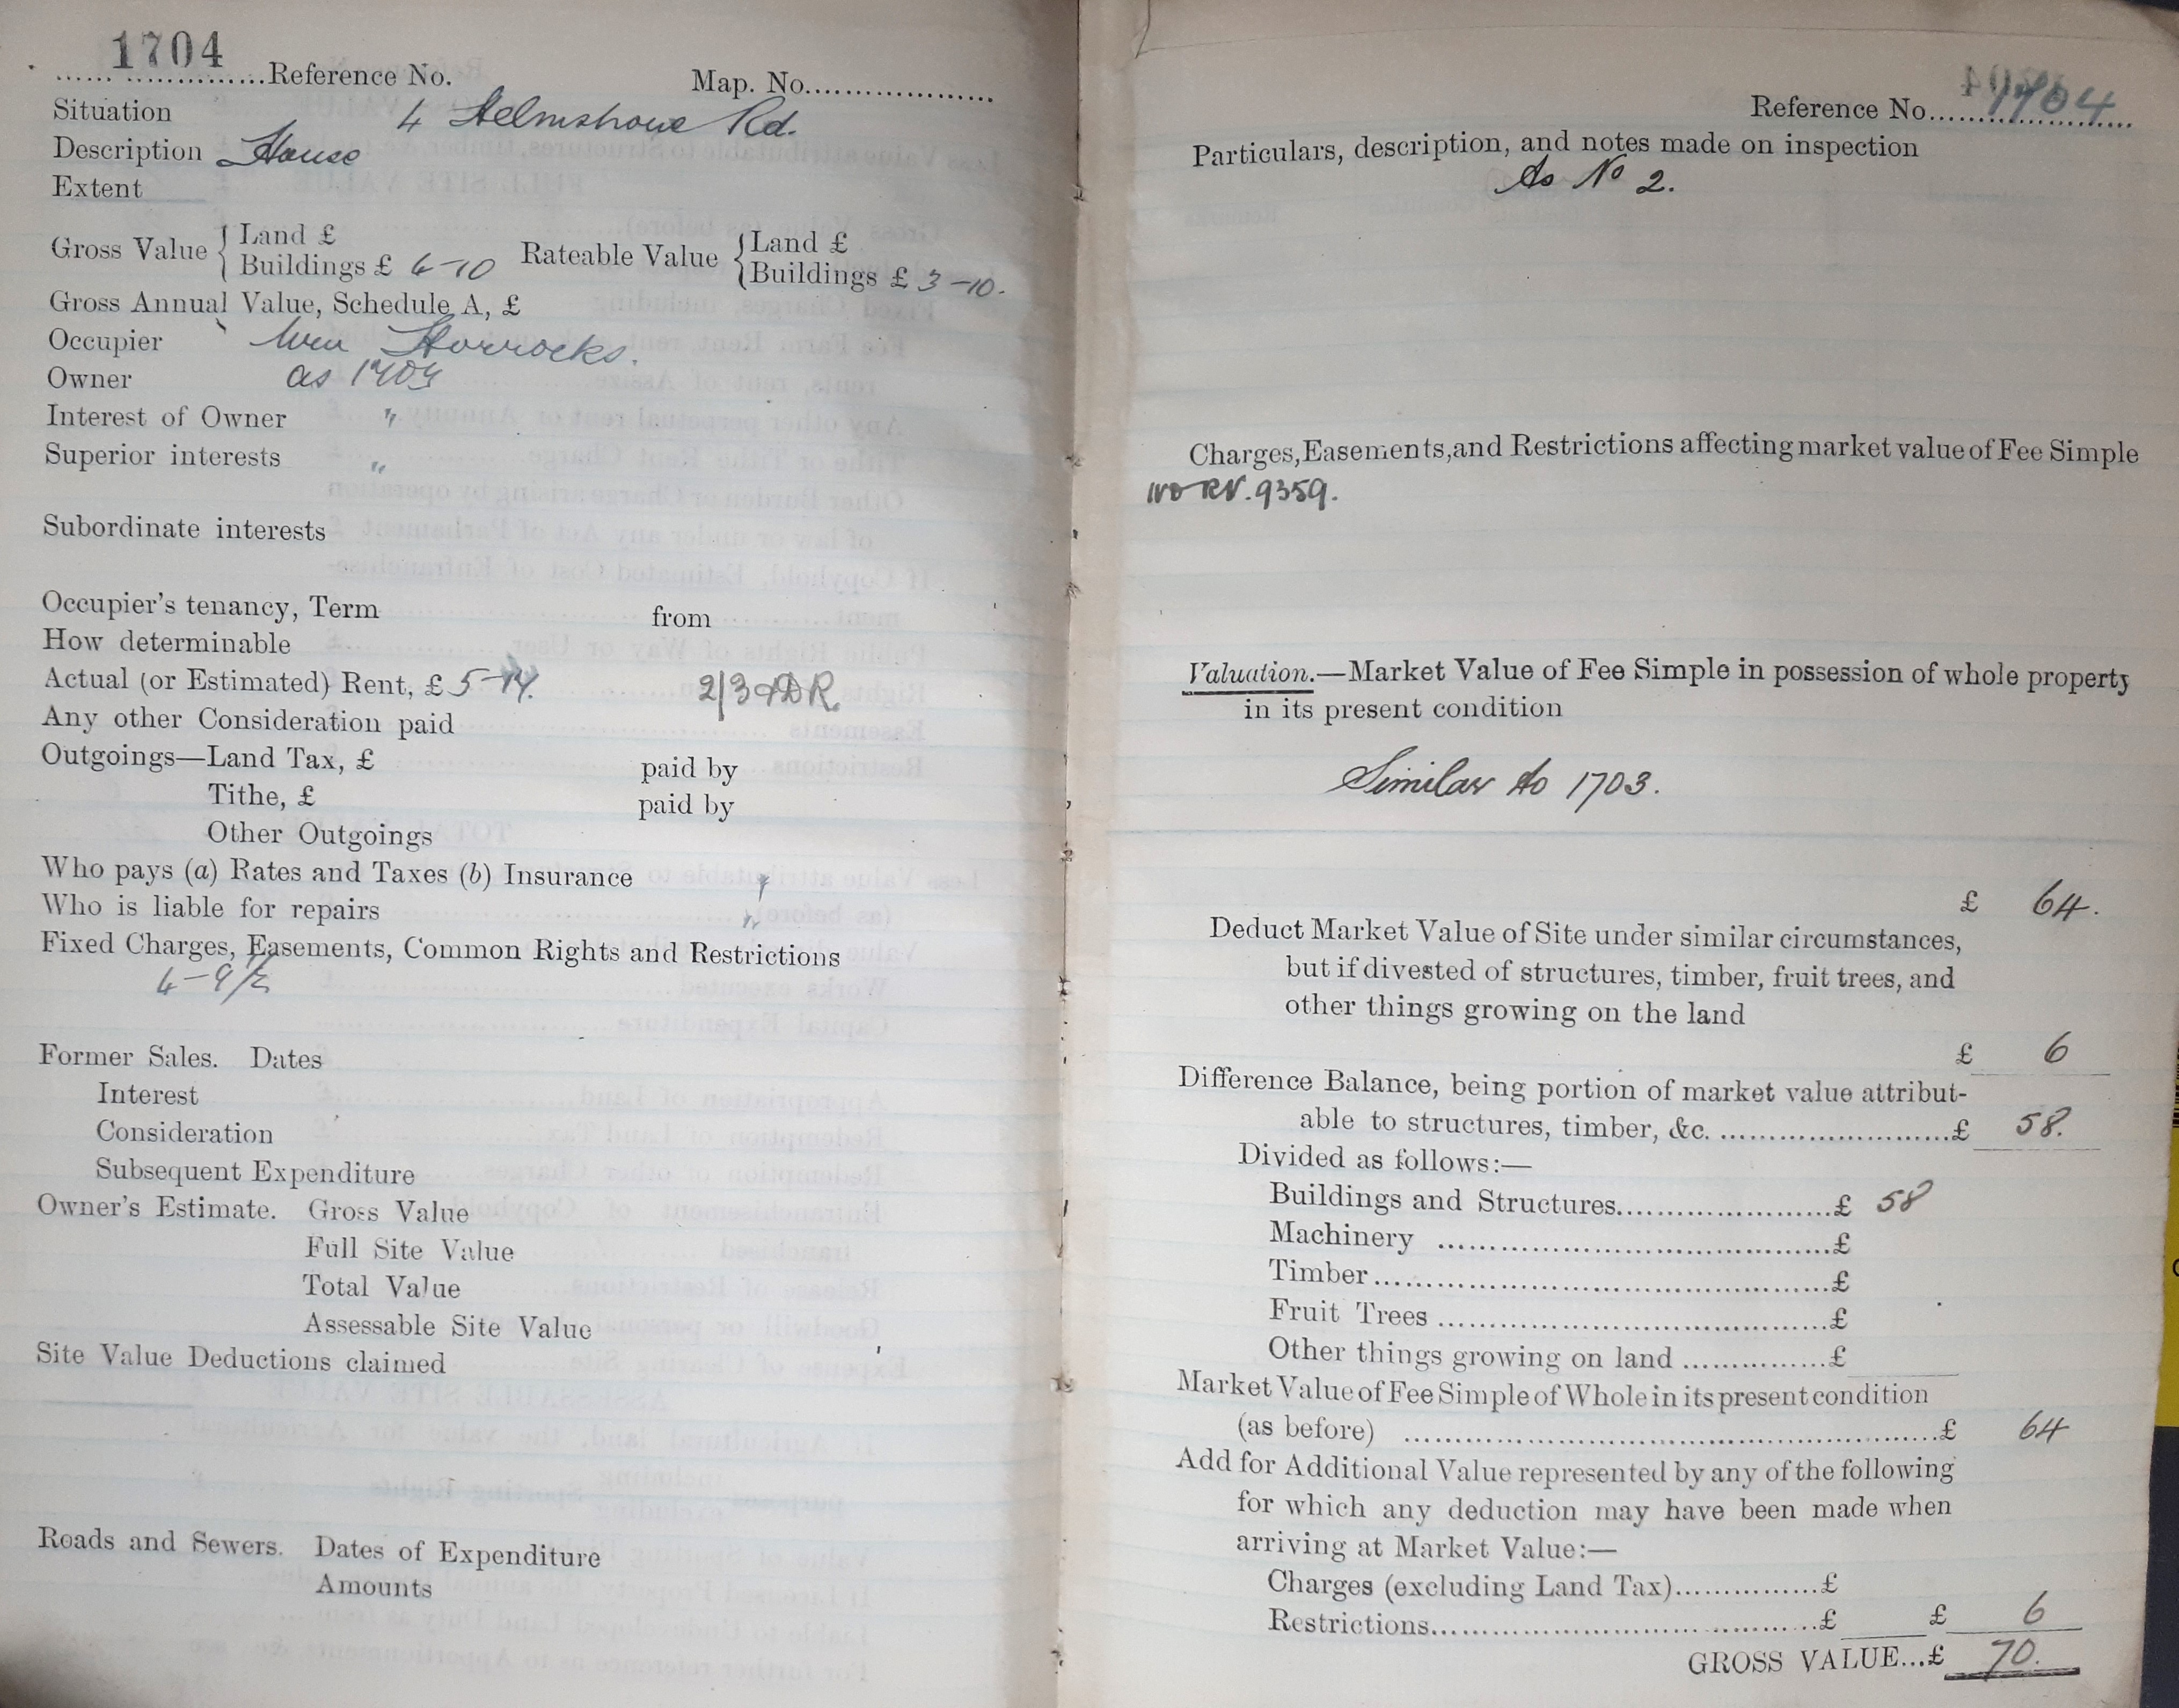 1704
Reference No. Map. No.
Situation 4 Helmshore Rd.
Description House
Extent
Gross Value { Land £
Buildings £ 4-10
Rateable Value { Land £
Buildings £ 3-10.
Gross Annual Value, Schedule A, £
Occupier Wm Horrocks.
Owner as 1703
Interest of Owner "
Superior interests "
Subordinate interests
Occupier's tenancy, Term from
How determinable
Actual (or Estimated) Rent, £ 5-14. 2/3
Any other Consideration paid
Outgoings—Land Tax, £ paid by
Tithe, £ paid by
Other Outgoings
Who pays (a) Rates and Taxes (b) Insurance
Who is liable for repairs "
Fixed Charges, Easements, Common Rights and Restrictions
4-9½
Former Sales. Dates
Interest
Consideration
Subsequent Expenditure
Owner's Estimate. Gross Value
Full Site Value
Total Value
Assessable Site Value
Site Value Deductions claimed
Roads and Sewers. Dates of Expenditure
Amounts
Reference No. 1704
Particulars, description, and notes made on inspection
As No 2.
Charges, Easements, and Restrictions affecting market value of Fee Simple
9359.
Valuation.—Market Value of Fee Simple in possession of whole property
in its present condition
Similar to 1703.
£ 64.
Deduct Market Value of Site under similar circumstances,
but if divested of structures, timber, fruit trees, and
other things growing on the land
£ 6
Difference Balance, being portion of market value attribut-
able to structures, timber, &c. £ 58.
Divided as follows:—
Buildings and Structures £ 58
Machinery £
Timber £
Fruit Trees £
Other things growing on land £
Market Value of Fee Simple of Whole in its present condition
(as before) £ 64
Add for Additional Value represented by any of the following
for which any deduction may have been made when
arriving at Market Value:—
Charges (excluding Land Tax) £
Restrictions £ £ 6
GROSS VALUE...£ 70.